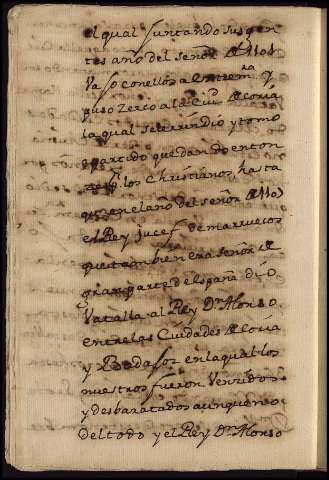 el qual juntando sus gen
tes año del señor de 1101
Vaso con ellos a extrem.ra y
puso zerco a la Ciu.d de Coria
la qual se le rrindio y tomo
a partido quedando enton
los Christianos hasta
q.e en el año del señor de 110
el Rey jucef de marruecos
que tambien era señor de
gran parte de españa dio
Vatalla al Rey D.n Alonso
entre las Ciudades de Coria
y Badajos en la qual los
nuestros fueron Venzidos
y desbaratados aunque no
del todo y el Rey D.n Alonso